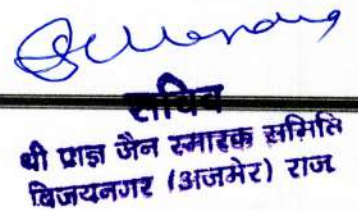 सचिव
श्री प्राज्ञ जैन स्मारक समिति
बिजयनगर (अजमेर) राज